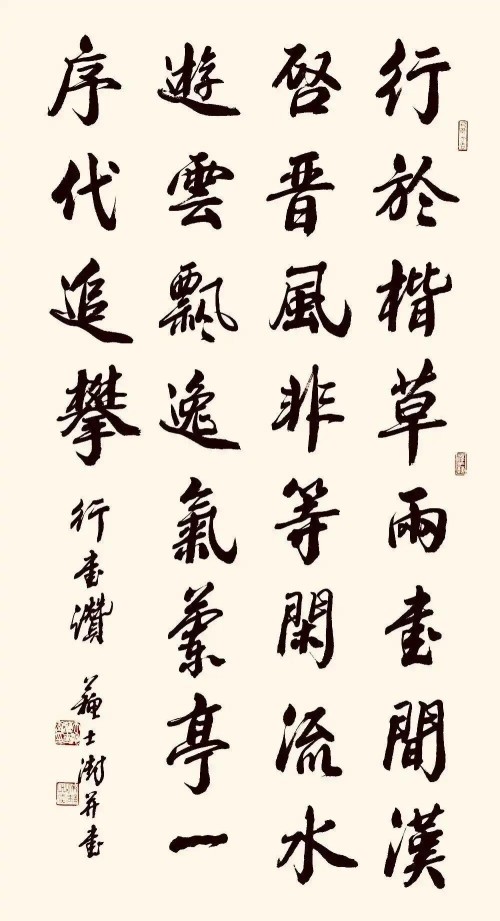 行於楷草兩書間漢
啓晋風非等閑流水
遊雲飄逸氣蘭亭一
序代追攀
行書讚
蘇士澍并書